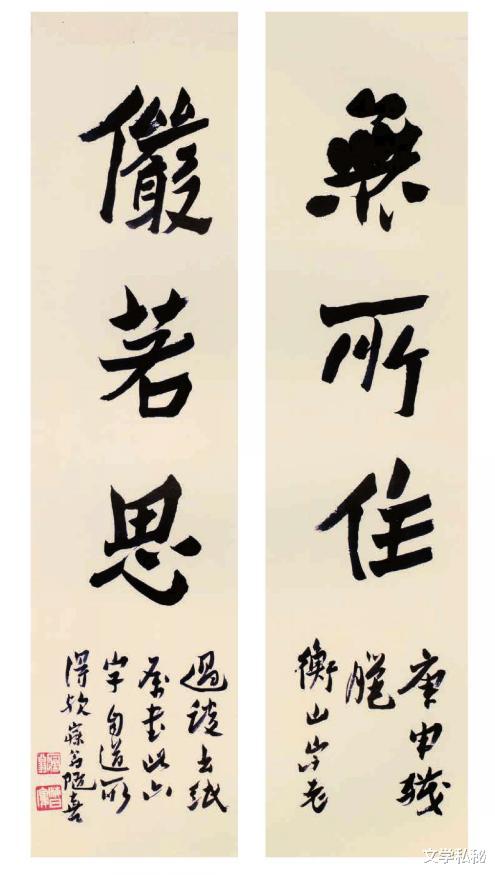 無所住
庚申殘
臘
衡山老
儼若思
過談出紙
屬書此六
字自道所
得欤寐翁隨喜
文学私秘